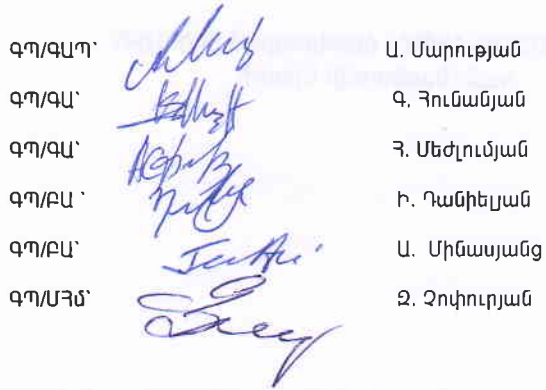 ԳՊ/ԳԱՊ՝ Ա. Մարության
ԳՊ/ԳԱ՝ Գ. Հունանյան
ԳՊ/ԳԱ՝ Հ. Մեժլումյան
ԳՊ/ԲԱ՝ Ի. Դանիելյան
ԳՊ/ԲԱ՝ Ա. Մինասյանց
ԳՊ/ՄՀՖ՝ Զ. Չոփուրյան